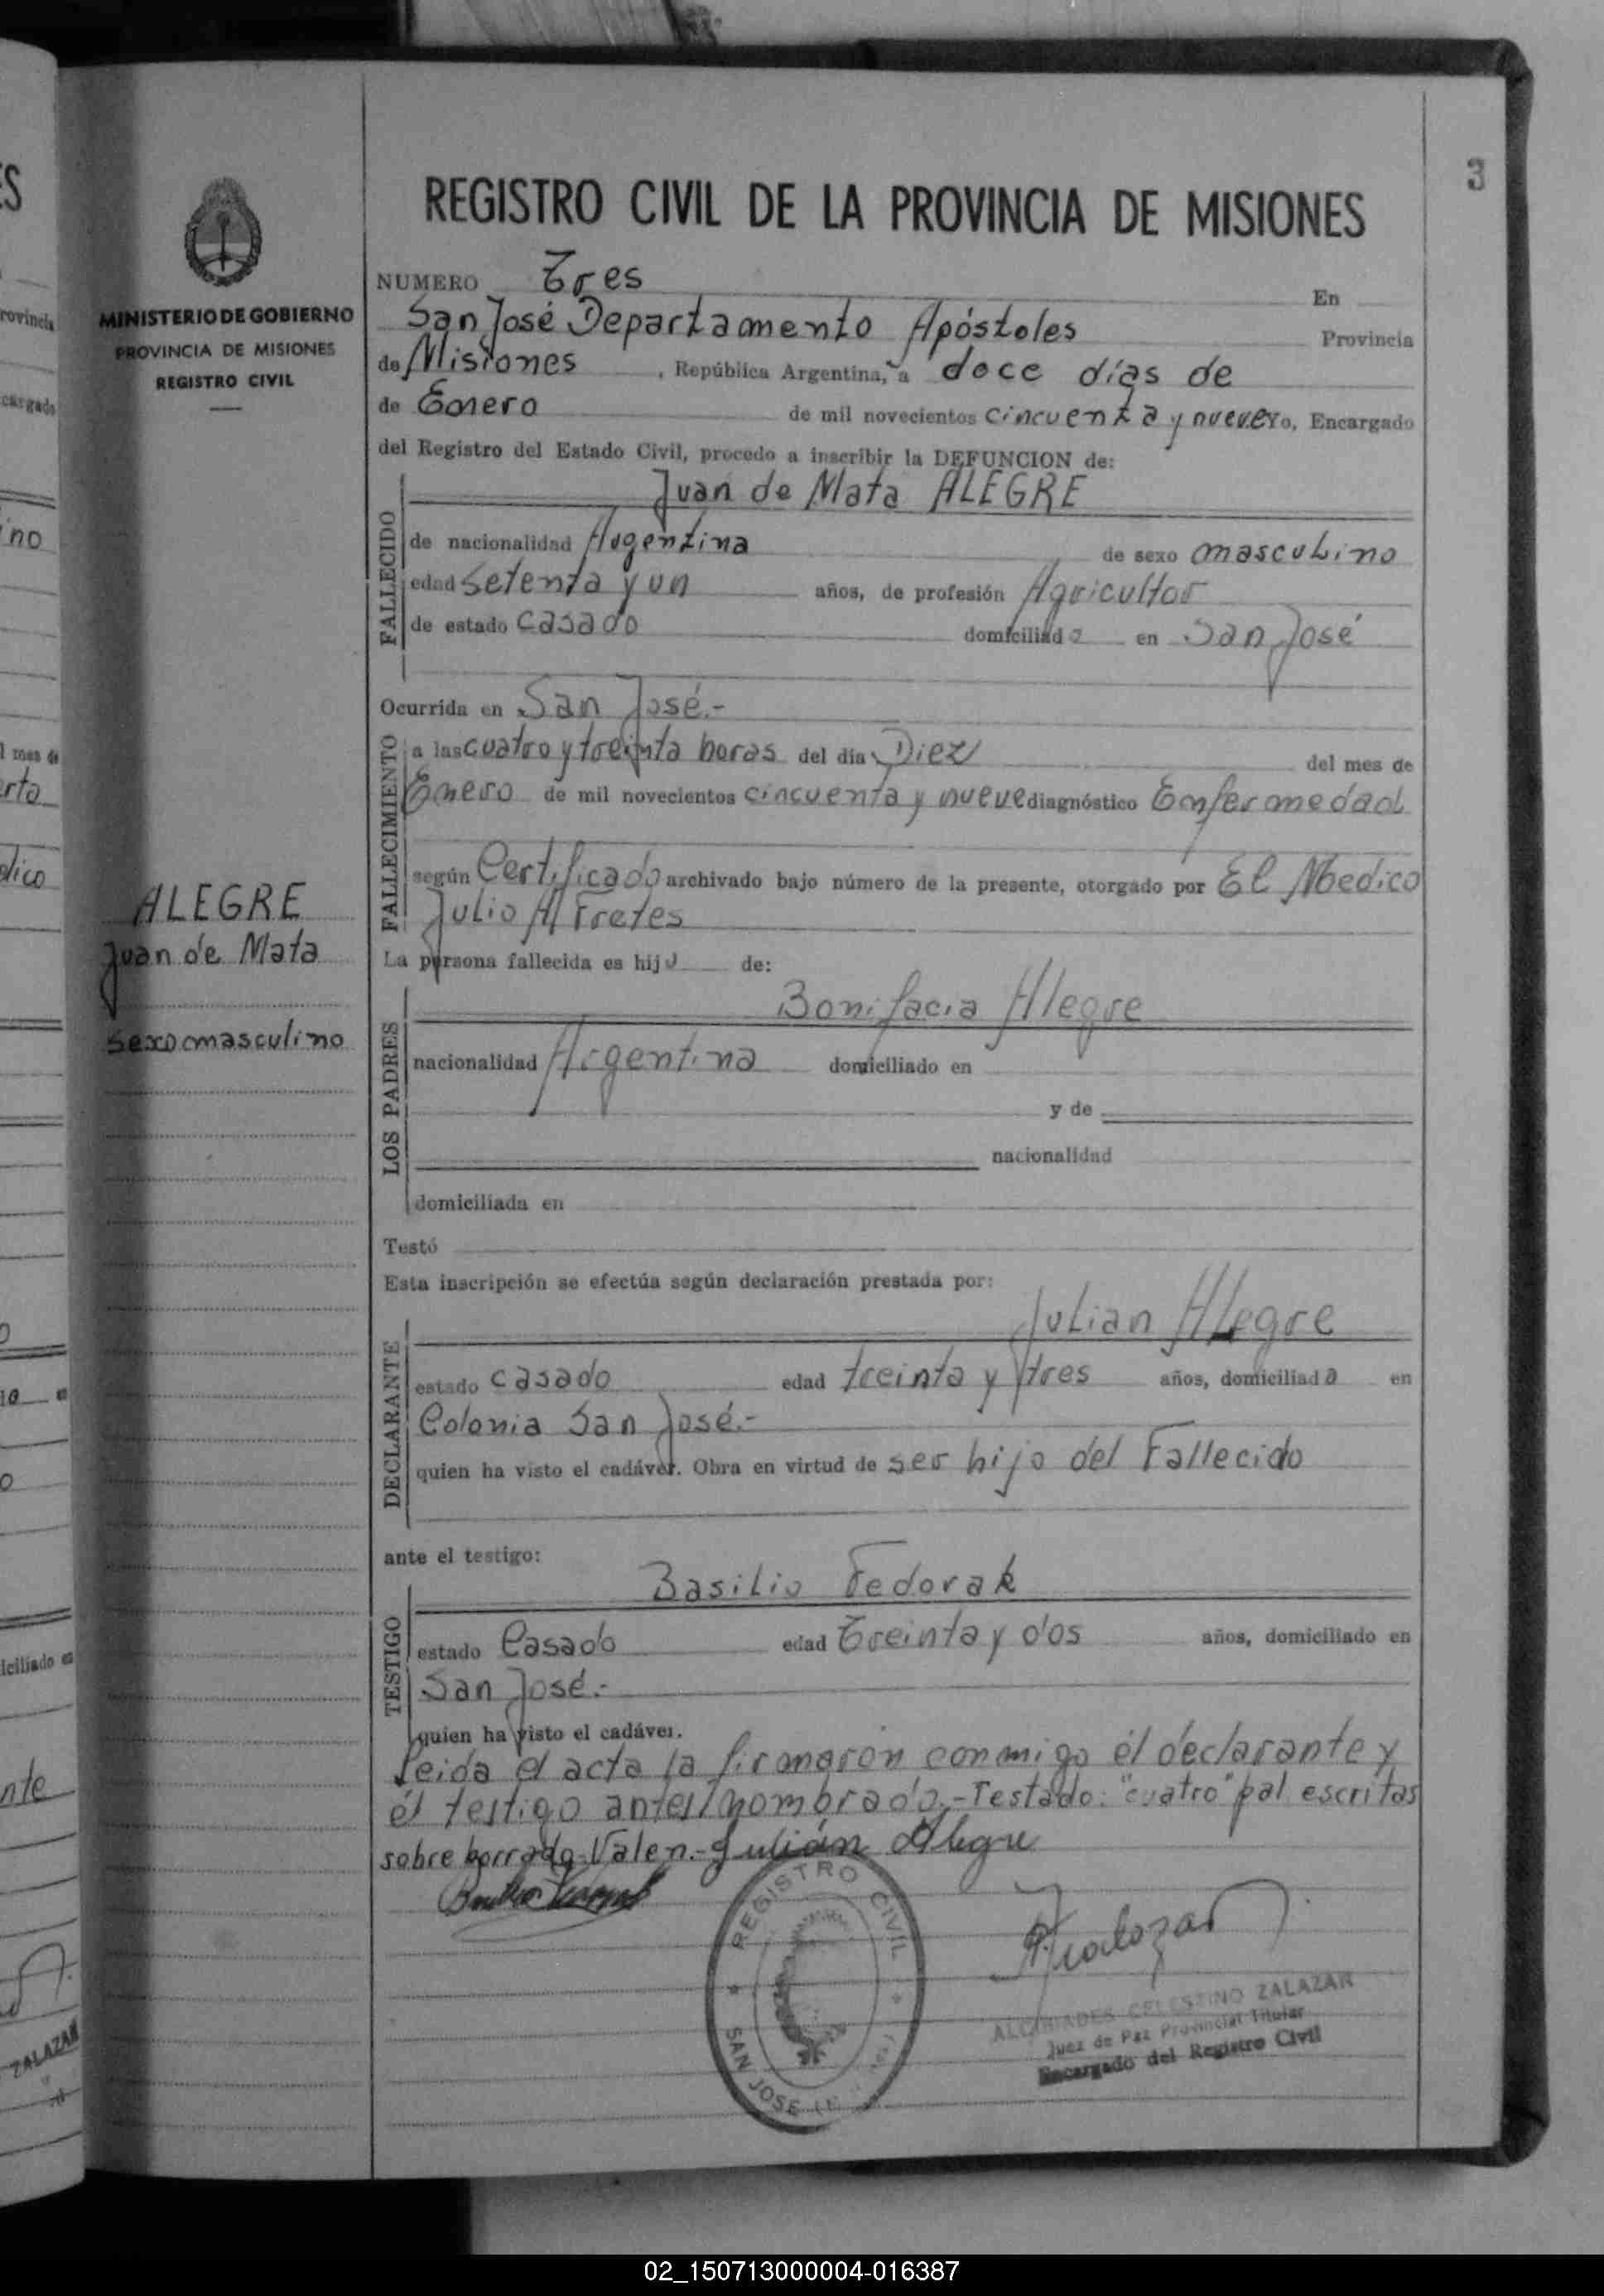 3
REGISTRO CIVIL DE LA PROVINCIA DE MISIONES
MINISTERIO DE GOBIERNO
PROVINCIA DE MISIONES
REGISTRO CIVIL
ALEGRE
Juan de Mata
sexo masculino
NUMERO Tres En
San José Departamento Apóstoles Provincia
de Misiones, República Argentina, a doce días de
de Enero de mil novecientos cincuenta y nueve yo, Encargado
del Registro del Estado Civil, procedo a inscribir la DEFUNCION de:
Juan de Mata ALEGRE
FALLECIDO
de nacionalidad Argentina de sexo masculino
edad setenta y un años, de profesión Agricultor
de estado casado domiciliado en San José
Ocurrida en San José.-
FALLECIMIENTO
a las cuatro y treinta horas del día Diez del mes de
Enero de mil novecientos cincuenta y nueve diagnóstico Enfermedad
según Certificado archivado bajo número de la presente, otorgado por El Medico
Julio A Fretes
La persona fallecida es hijo de:
LOS PADRES
Bonifacia Alegre
nacionalidad Argentina domiciliado en
y de
nacionalidad
domiciliada en
Testó
Esta inscripción se efectúa según declaración prestada por:
DECLARANTE
Julian Alegre
estado casado edad treinta y tres años, domiciliado en
Colonia San José.-
quien ha visto el cadáver. Obra en virtud de ser hijo del Fallecido
ante el testigo:
TESTIGO
Basilio Fedorak
estado Casado edad Treinta y dos años, domiciliado en
San José.-
quien ha visto el cadáver.
Leida el acta la firmaron conmigo él declarante y
él testigo antes nombrado.- Testado: "cuatro" pal escritas
sobre borrado-Valen.- Julián Alegre
REGISTRO CIVIL
SAN JOSE
ALCIBIADES CELESTINO ZALAZAR
Juez de Paz Provincial Titular
Encargado del Registro Civil
02_150713000004-016387